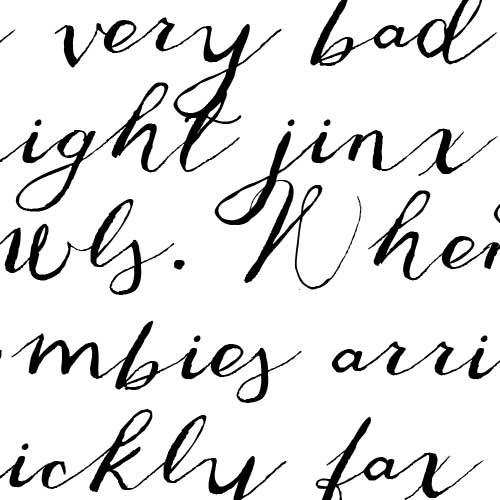 very bad
ight jinx
wls. When
mbies arri
ickly fax